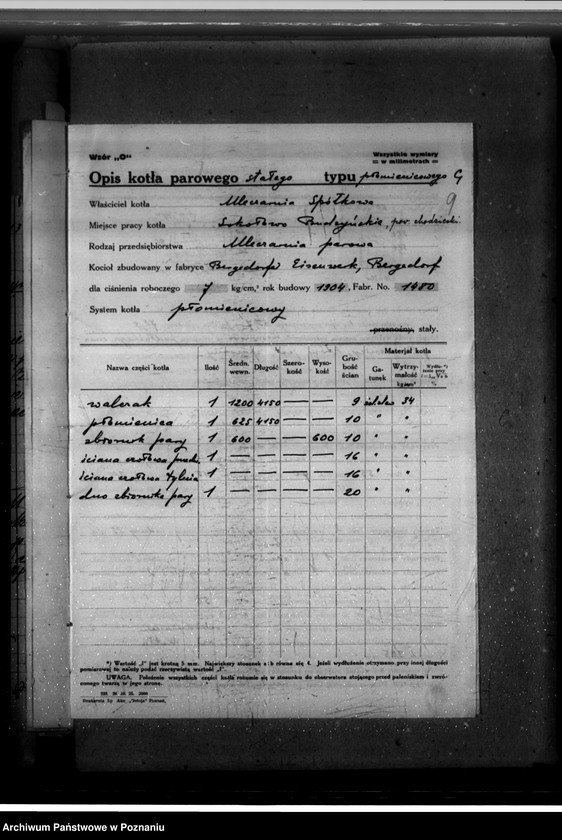 Wzór „G"
Wszystkie wymiary
= w milimetrach =
Opis kotła parowego stałego typu płomienicowego G
9
Właściciel kotła Mleczarnia Spółkowa
Miejsce pracy kotła Sokołowo Budzyńskie, pow. chodzieski
Rodzaj przedsiębiorstwa Mleczarnia parowa
Kocioł zbudowany w fabryce Bergedorfer Eisenwerk, Bergedorf
dla ciśnienia roboczego 7 kg/cm,² rok budowy 1904, Fabr. No. 1480
System kotła płomienicowy
przenośny, stały.
Nazwa części kotła Ilość Średn. wewn. Długość Szerokość Wysokość Grubość ścian Materjał kotła Gatunek Wytrzymałość kg/mm²
walczak 1 1200 4150 — — 9 34
płomienica 1 625 4150 — — 10 " "
zbiornik pary 1 600 — — 600 10 " "
ściana czołowa przed. 1 — — — — 16 " "
ściana czołowa tylna 1 — — — — 16 " "
dno zbiornika pary 1 — — — — 20 " "
*) Wartość „l" jest krotną 5 mm. Największy stosunek a : b równa się 4. Jeżeli wydłużenie otrzymano przy innej długości
pomiarowej to należy podać rzeczywistą wartość „l".
UWAGA. Położenie wszystkich części kotła rozumie się w stosunku do obserwatora stojącego przed paleniskiem i zwróconego twarzą w jego stronę.
Drukarnia Sp. Akc. Poznań.
Archiwum Państwowe w Poznaniu